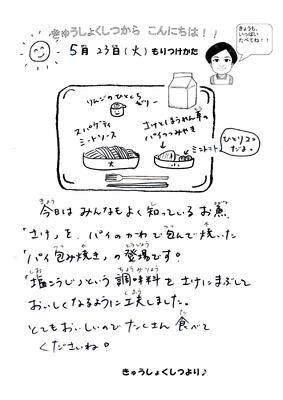 きゅうしょくしつから こんにちは！！
きょうも、
いっぱい
たべてね！！
5月23日(火)もりつけかた
りんごのひとくち
ゼリー
スパゲティ
ミートソース
さけとほうれん草の
パイつつみやき
ミニトマト
ひとり2コ
だよ。
大
小
今日は みんなもよく 知っている お魚
「さけ」を、パイのかわで 包んで 焼いた
「パイ包み焼き」の 登場です！
「塩こうじ」という 調味料を さけにまぶして
おいしくなるように工夫しました。
とてもおいしいので たくさん 食べて
くださいね？
きゅうしょくしつより♪